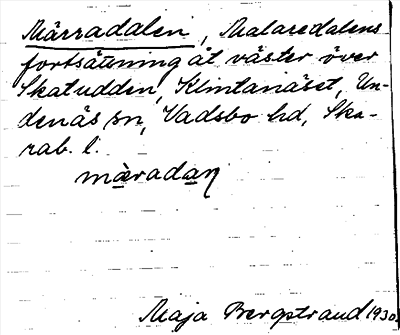 Märradalen, Malaredalens
fortsättning åt väster över
Skatudden, Klintanäset, Un-
denäs sn, Vadsbo hd, Ska-
rab. l.
mæ̀radaṉ
Maja Bergstrand 1930.